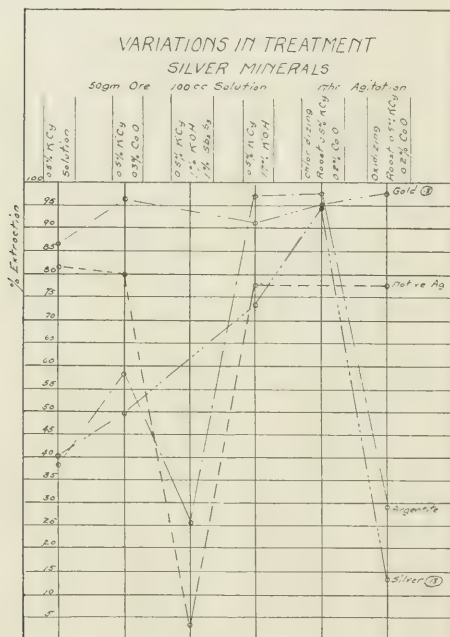 VARIATIONS IN TREATMENT
SILVER MINERALS
50gm Ore 100cc Solution 17hr Agitation
0.5% KCy
Solution
0.5% KCy
0.3% CaO
0.5% KCy
1% KOH
1% Sb2S3
0.5% KCy
1% KOH
Chloridizing
Roast 0.5% KCy
0.2% CaO
Oxidizing
Roast 0.5% KCy
0.2% CaO
% Extraction
100
95
90
85
80
75
70
65
60
55
50
45
40
35
30
25
20
15
10
5
Gold
Native Ag
Argentite
Silver 13